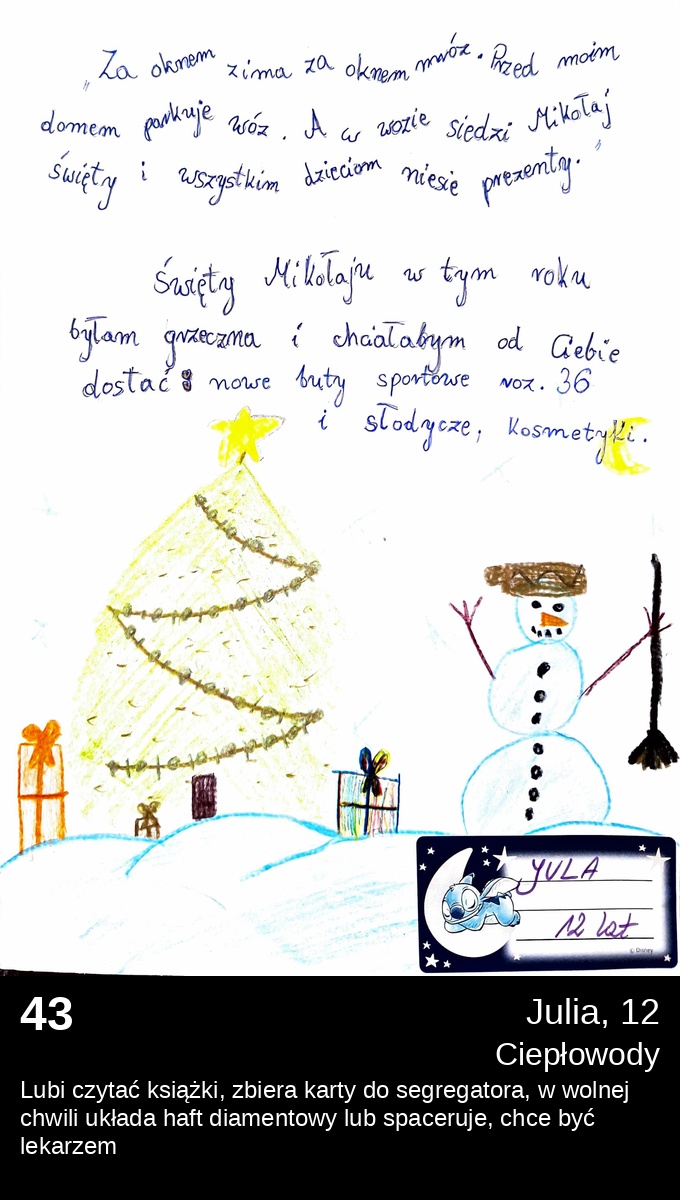 „Za oknem zima za oknem mróz. Przed moim
domem parkuje wóz. A w wozie siedzi Mikołaj
święty i wszystkim dzieciom niesie prezenty."
Święty Mikołaju w tym roku
byłam grzeczna i chciałabym od Ciebie
dostać: nowe buty sportowe roz. 36
i słodycze, kosmetyki.
JULA
12 lat
© Disney
43
Julia, 12
Ciepłowody
Lubi czytać książki, zbiera karty do segregatora, w wolnej
chwili układa haft diamentowy lub spaceruje, chce być
lekarzem